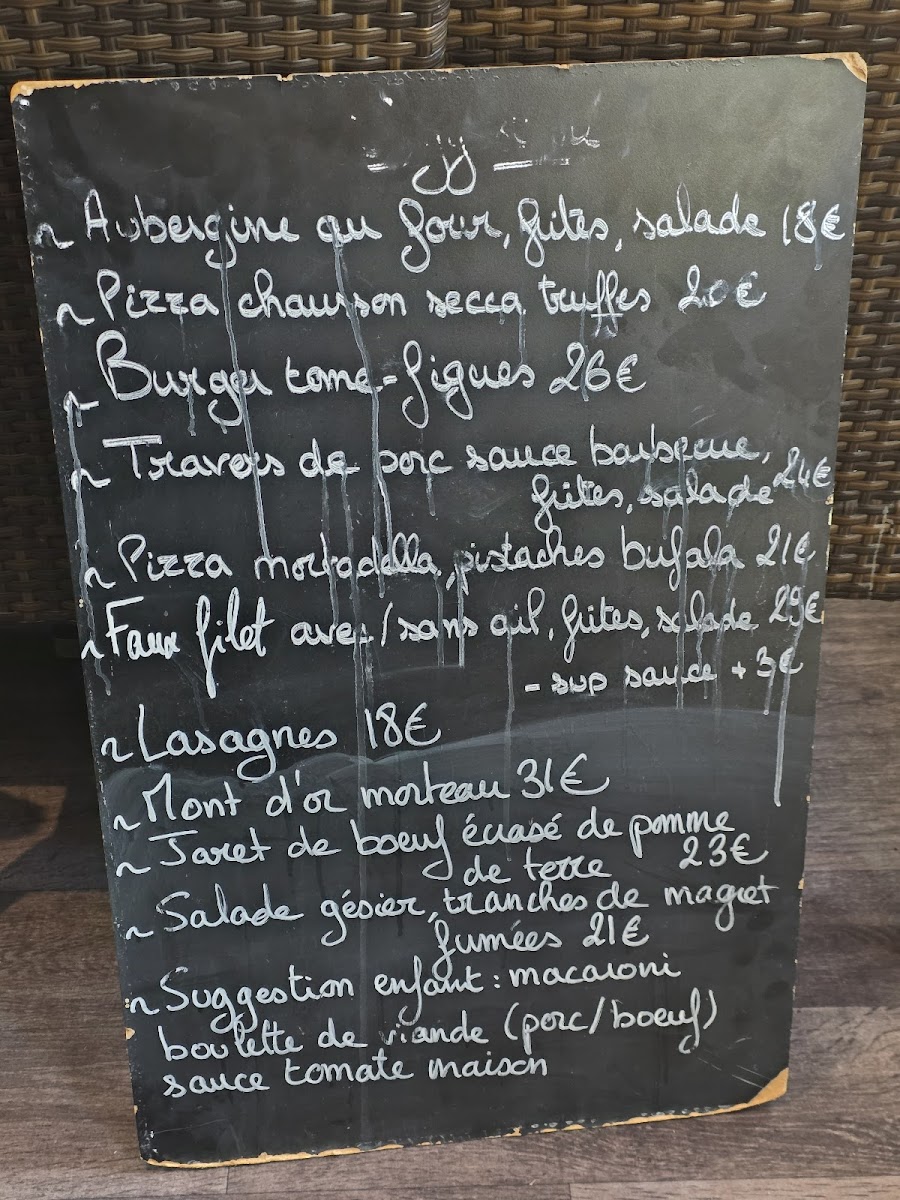 ~ Aubergine au four, frites, salade 18€
~ Pizza chausson secca truffes 20€
~ Burger tome-figues 26€
~ Travers de porc sauce barbecue,
frites, salade 24€
~ Pizza mortadella, pistaches bufala 21€
~ Faux filet avec/sans ail, frites, salade 29€
- sup sauce + 3€
~ Lasagnes 18€
~ Mont d'or morteau 31€
~ Jaret de boeuf écrasé de pomme
de terre 23€
~ Salade gésier, tranches de magret
fumées 21€
~ Suggestion enfant : macaroni
boulette de viande (porc/boeuf)
sauce tomate maison